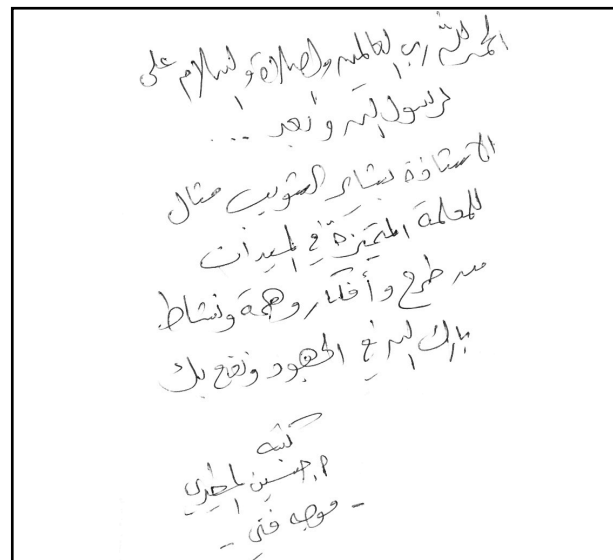 الحمد لله رب العالمين والصلاة والسلام على
رسول الله وبعد ...
الاستاذة بشاير الشويب مثال
للمعلمة المتميزة في الميدان
من طرح وأفكار وهمة ونشاط
بارك الله في الجهود ونفع بك
كتبه
م. حسين المطيري
- موجه فني -